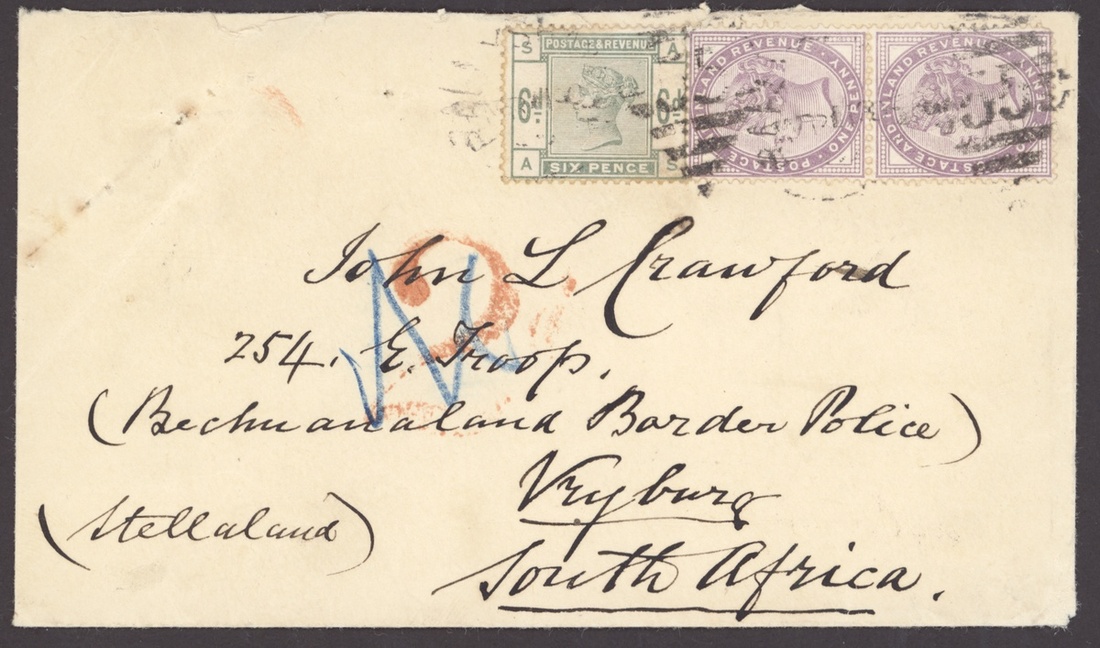 S POSTAGE & REVENUE A
6d 6d
A SIX PENCE S
POSTAGE AND INLAND REVENUE ONE PENNY
POSTAGE AND INLAND REVENUE ONE PENNY
John L Crawford
254. E. Troop.
(Bechuanaland Border Police)
Vryburg
(Stellaland)
South Africa.